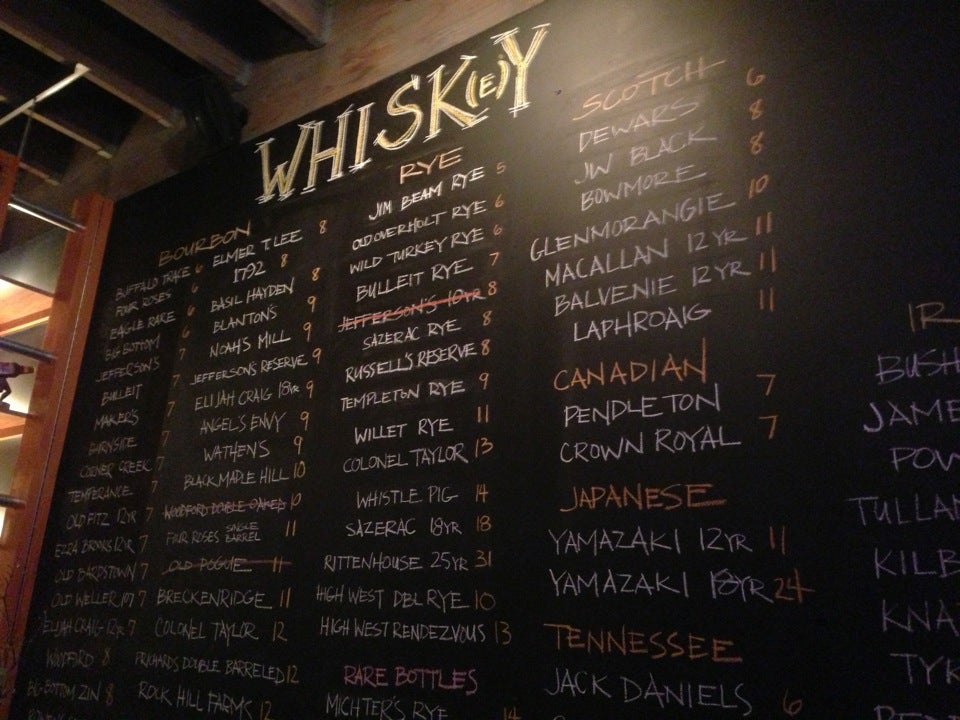 WHISK(E)Y
BOURBON
BUFFALO TRACE 6
FOUR ROSES 6
EAGLE RARE 6
BIG BOTTOM 6
JEFFERSON'S 7
BULLEIT 7
MAKER'S 7
BURNSIDE 7
CORNER CREEK 7
TEMPERANCE 7
OLD FITZ 12YR 7
EZRA BROOKS 12YR 7
OLD BARDSTOWN 7
OLD WELLER 107 7
ELIJAH CRAIG 12YR 7
WOODFORD 8
BIG BOTTOM ZIN 8
ELMER T LEE 8
1792 8
BASIL HAYDEN 8
BLANTONS 9
NOAH'S MILL 9
JEFFERSONS RESERVE 9
ELIJAH CRAIG 18YR 9
ANGEL'S ENVY 9
WATHEN'S 9
BLACK MAPLE HILL 10
WOODFORD DOUBLE OAKED 10
FOUR ROSES SINGLE BARREL 11
OLD POGUE 11
BRECKENRIDGE 11
COLONEL TAYLOR 12
PRICHARDS DOUBLE BARRELED 12
ROCK HILL FARMS 12
RYE
JIM BEAM RYE 5
OLD OVERHOLT RYE 6
WILD TURKEY RYE 6
BULLEIT RYE 7
JEFFERSON'S 10YR 8
SAZERAC RYE 8
RUSSELL'S RESERVE 8
TEMPLETON RYE 9
WILLET RYE 11
COLONEL TAYLOR 13
WHISTLE PIG 14
SAZERAC 18YR 18
RITTENHOUSE 25YR 31
HIGH WEST DBL RYE 10
HIGH WEST RENDEZVOUS 13
RARE BOTTLES
MICHTER'S RYE 14
SCOTCH
DEWARS 6
JW BLACK 8
BOWMORE 8
GLENMORANGIE 10
MACALLAN 12YR 11
BALVENIE 12YR 11
LAPHROAIG 11
CANADIAN
PENDLETON 7
CROWN ROYAL 7
JAPANESE
YAMAZAKI 12YR 11
YAMAZAKI 18YR 24
TENNESSEE
JACK DANIELS 6
IR
BUSH
JAME
POW
TULLAM
KILB
KNA
TYR